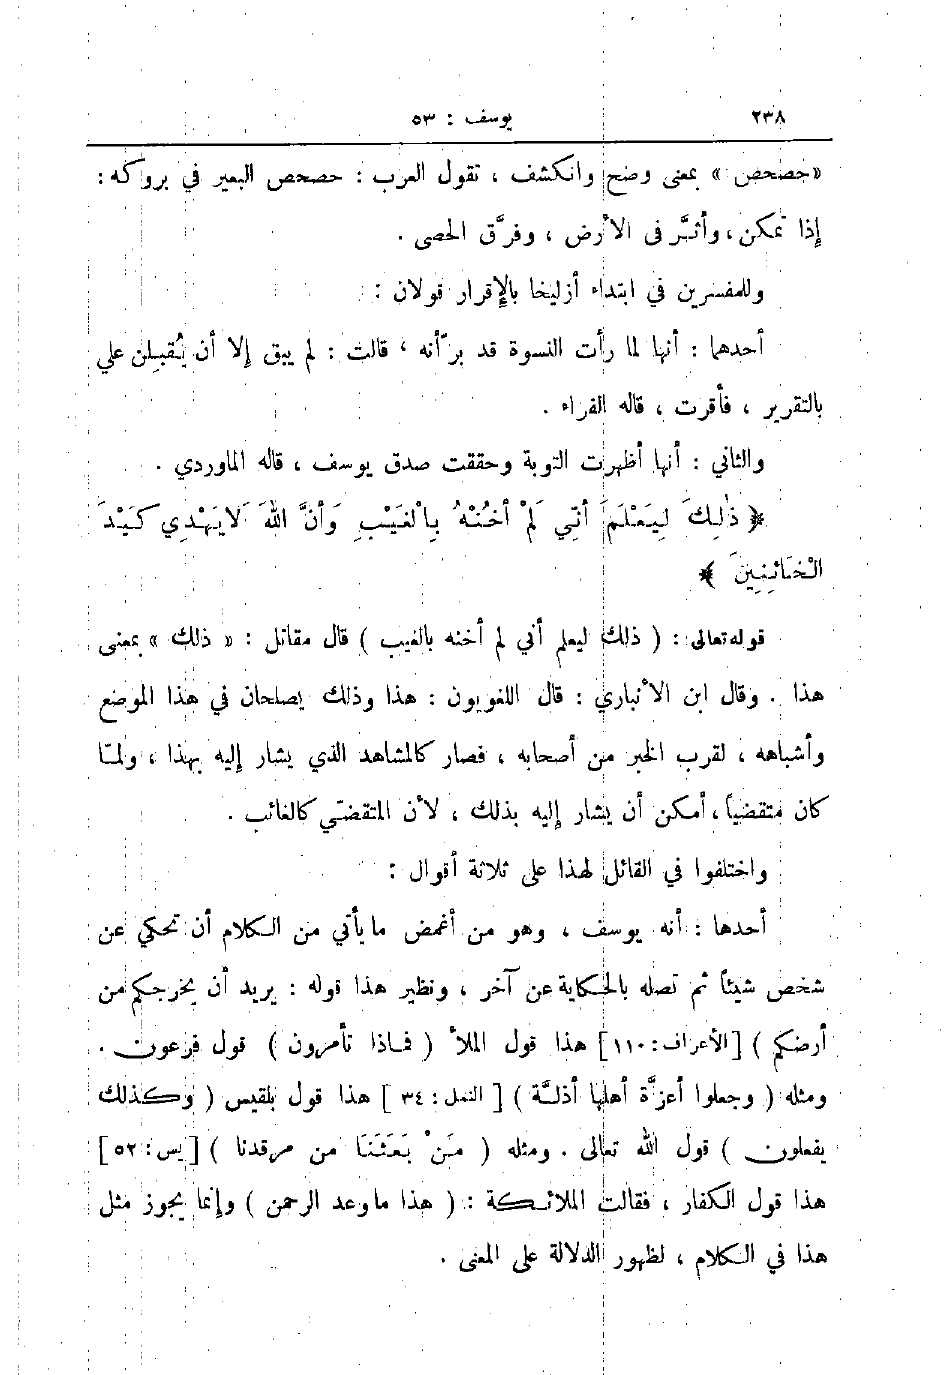 ٢٣٨ يوسف : ٥٣
«حصحص» بمعنى وضح وانكشف ، تقول العرب : حصحص البعير في بروكه :
إذا تمكن ، وأثَّر فى الأرض ، وفرَّق الحصى .
وللمفسرين في ابتداء أزليخا بالإقرار قولان :
أحدهما : أنها لما رأت النسوة قد برَّأنه ، قالت : لم يبق إلا أن يُقبلن علي
بالتقرير ، فأقرت ، قاله الفراء .
والثاني : أنها أظهرت التوبة وحققت صدق يوسف ، قاله الماوردي .
﴿ ذٰلِكَ لِيَعْلَمَ أَنِّي لَمْ أَخُنْهُ بِالْغَيْبِ وَأَنَّ اللهَ لَا يَهْدِي كَيْدَ
الْخَائِنِينَ ﴾
قوله تعالى : ( ذلك ليعلم أني لم أخنه بالغيب ) قال مقاتل : « ذلك » بمعنى
هذا . وقال ابن الأنباري : قال اللغويون : هذا وذلك يصلحان في هذا الموضع
وأشباهه ، لقرب الخبر من أصحابه ، فصار كالمشاهد الذي يشار إليه بهذا ، ولمّا
كان متقضياً ، أمكن أن يشار إليه بذلك ، لأن المتقضّي كالغائب .
واختلفوا في القائل لهذا على ثلاثة أقوال :
أحدها : أنه يوسف ، وهو من أغمض ما يأتي من الكلام أن تحكي عن
شخص شيئاً ثم تصله بالحكاية عن آخر ، ونظير هذا قوله : يريد أن يخرجكم من
أرضكم ) [الأعراف : ١١٠] هذا قول الملأ ( فماذا تأمرون ) قول فرعون .
ومثله ( وجعلوا أعزَّة أهلها أذلَّة ) [ النمل : ٣٤ ] هذا قول بلقيس ( وكذلك
يفعلون ) قول الله تعالى . ومثله ( مَنْ بَعَثَنَا من مرقدنا ) [يس : ٥٢]
هذا قول الكفار ، فقالت الملائكة : ( هذا ما وعد الرحمن ) وإنما يجوز مثل
هذا في الكلام ، لظهور الدلالة على المعنى .